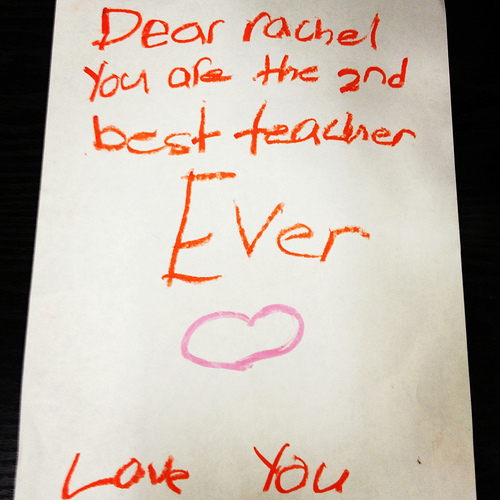 Dear rachel
You are the 2nd
best teacher
Ever
Love You